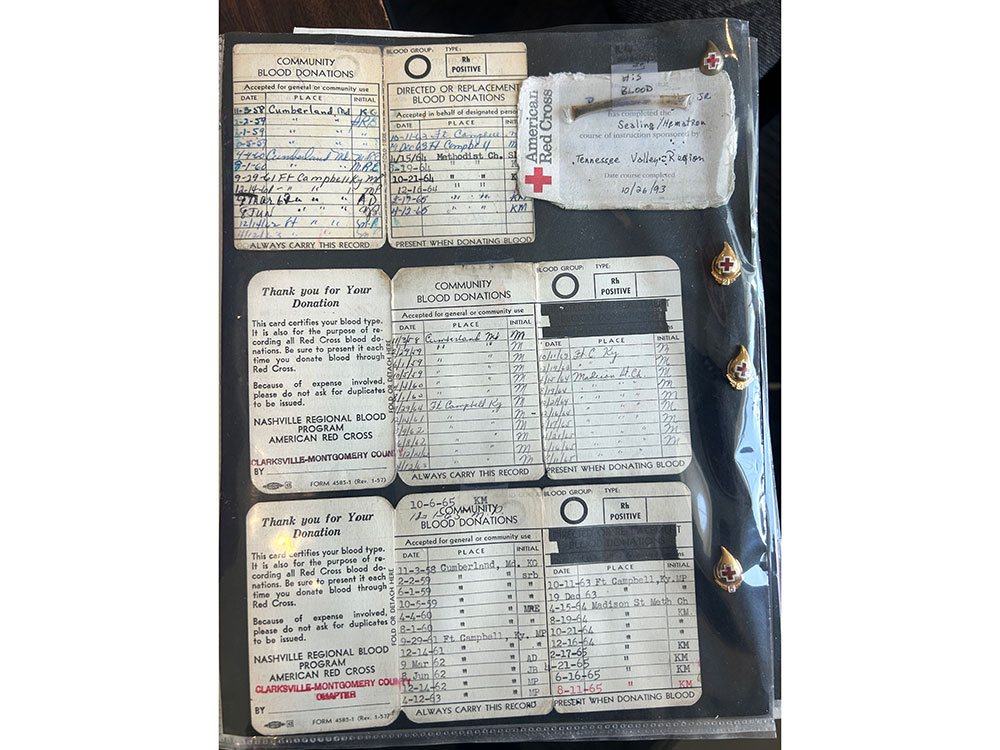 COMMUNITY
BLOOD DONATIONS
Accepted for general or community use
DATE PLACE INITIAL
11-3-58 Cumberland, Md. KO
2-2-59 " "
6-1-59 " "
10-5-59 " "
4-4-60 Cumberland Md. MRE
8-1-60 " " MRE
9-29-61 Ft Campbell Ky MP
12-14-61 " " MP
9 Mar 62 " " AD
8 Jun " "
12/14/62 Ft " "
4/12/63 " "
ALWAYS CARRY THIS RECORD
BLOOD GROUP: TYPE:
O Rh
POSITIVE
DIRECTED OR REPLACEMENT
BLOOD DONATIONS
Accepted in behalf of designated person
10-11-63 Ft. Campbell
19 Dec 63 Ft Campbell
4/15/64 Methodist Ch.
8-19-64 " "
10-21-64 " " K
12-16-64 " "
2-17-65 " " KM
4-12-65 " " KM
PRESENT WHEN DONATING BLOOD
HIS
BLOOD
JR
American
Red Cross
Has completed the
Sealing/Hematron
course of instruction sponsored by
Tennessee Valley Region
Date course completed
10/26/93
Thank you for Your
Donation
This card certifies your blood type.
It is also for the purpose of re-
cording all Red Cross blood do-
nations. Be sure to present it each
time you donate blood through
Red Cross.
Because of expense involved,
please do not ask for duplicates
to be issued.
NASHVILLE REGIONAL BLOOD
PROGRAM
AMERICAN RED CROSS
CLARKSVILLE-MONTGOMERY COUN
BY
FORM 4585-1 (Rev. 1-57)
FOLD OR DETACH HERE
COMMUNITY
BLOOD DONATIONS
Accepted for general or community use
DATE PLACE INITIAL
11/3/58 Cumberland Md M
2/2/59 " " M
6/1/59 " " M
10/5/59 " " M
4/4/60 " " M
8/1/60 " " M
9/29/61 Ft Campbell Ky M
12/14/61 " " M
3/9/62 " " M
6/8/62 " " M
12/14/62 " " M
4/12/63 " " M
ALWAYS CARRY THIS RECORD
BLOOD GROUP: TYPE:
O Rh
POSITIVE
DATE PLACE INITIAL
10/11/63 Ft C Ky. M
12/19/63 " " M
4/15/64 Madison St Ch. M
8/19/64 " " M
10/21/64 " " M
12/16/64 " " M
2/17/65 " " M
4/21/65 " " M
6/16/65 " " M
8/11/65 " " M
PRESENT WHEN DONATING BLOOD
Thank you for Your
Donation
This card certifies your blood type.
It is also for the purpose of re-
cording all Red Cross blood do-
nations. Be sure to present it each
time you donate blood through
Red Cross.
Because of expense involved,
please do not ask for duplicates
to be issued.
NASHVILLE REGIONAL BLOOD
PROGRAM
AMERICAN RED CROSS
CLARKSVILLE-MONTGOMERY COUNTY
CHAPTER
BY
FORM 4585-1 (Rev. 1-57)
FOLD OR DETACH HERE
10-6-65 KM
COMMUNITY
BLOOD DONATIONS
Accepted for general or community use
DATE PLACE INITIAL
11-3-58 Cumberland, Md. KO
2-2-59 " " srb
6-1-59 " " "
10-5-59 " " "
4-4-60 " " MRE
8-1-60 " " "
9-29-61 Ft Campbell, Ky. MP
12-14-61 " " "
9 Mar 62 " " AD
8 Jun 62 " " JB
12-14-62 " " MP
4-12-63 " " MP
ALWAYS CARRY THIS RECORD
BLOOD GROUP: TYPE:
O Rh
POSITIVE
DATE PLACE INITIAL
10-11-63 Ft Campbell, Ky. MP
19 Dec 63 " "
4-15-64 Madison St Meth Ch
8-19-64 " KM
10-21-64 " "
12-16-64 " KM
2-17-65 " KM
4-21-65 " KM
6-16-65 " KM
8-11-65 " KM
PRESENT WHEN DONATING BLOOD